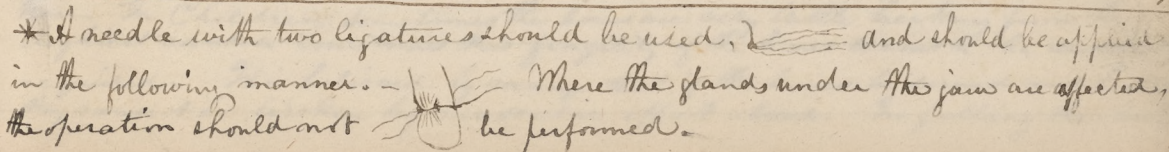 * A needle with two ligatures should be used, and should be applied
in the following manner. – Where the glands under the jaw are affected,
the operation should not be performed.